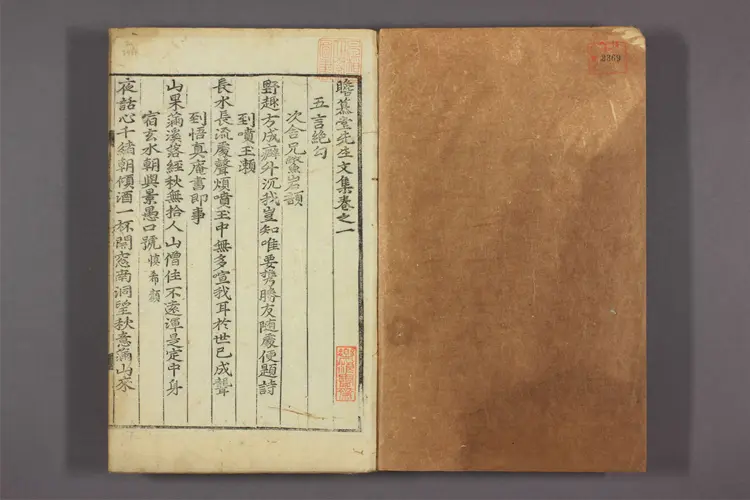 瞻慕堂先生文集卷之一
五言絶句
次舍兄鰲岩韻
野趣方成癖外沉我豈知唯要携勝友随處便題詩
到噴玉瀨
長水長流處聲煩噴玉中無多喧我耳於世已成聾
到悟真庵書即事
山果滿溪落經秋無拾人山僧住不遠渾是定中身
宿玄水朝與景愚口號 慎希顏
夜話心千緒朝傾酒一杯開窓南洞望秋意滿山來
3369